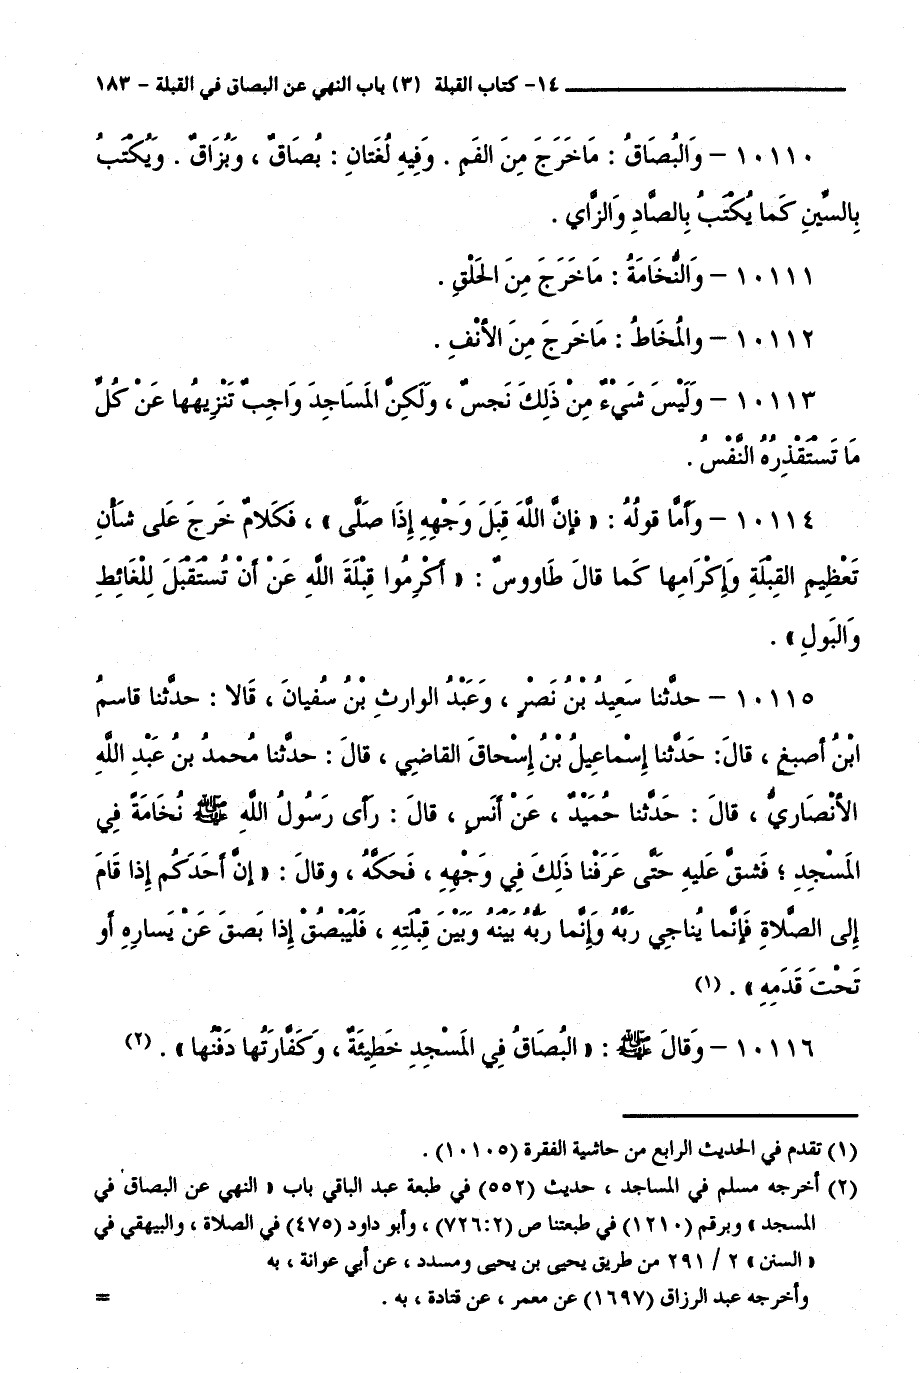 ١٤- كتاب القبلة (٣) باب النهي عن البصاق في القبلة - ١٨٣
١٠١١٠ – وَالبُصَاقُ : مَاخَرَجَ مِنَ الفَمِ . وَفِيهِ لُغَتَانِ : بُصَاقٌ ، وَبُزَاقٌ . وَيُكْتَبُ
بِالسِّينِ كَما يُكْتَبُ بِالصَّادِ وَالزَّاي .
١٠١١١ – وَالنُّخَامَةُ : مَاخَرَجَ مِنَ الحَلْقِ .
١٠١١٢ – والمُخَاطُ : مَاخَرَجَ مِنَ الأَنْفِ .
١٠١١٣ – وَلَيْسَ شَيْءٌ مِنْ ذَلِكَ نَجسٌ ، وَلَكِنَّ المَسَاجِدَ وَاجِبٌ تَنْزِيهُها عَنْ كُلِّ
مَا تَسْتَقْذِرُهُ النَّفْسُ .
١٠١١٤ – وَأَمَّا قولُهُ : « فإنَّ اللَّهَ قِبَلَ وَجْهِهِ إِذَا صَلَّى » ، فَكَلامٌ خَرجَ عَلى شأنِ
تَعْظِيمِ القِبْلَةِ وَإِكْرَامِها كَما قالَ طَاووسٌ : « أَكْرِمُوا قِبْلَةَ اللَّهِ عَنْ أَنْ تُسْتَقْبَلَ لِلْغَائِطِ
وَالبَولِ » .
١٠١١٥ – حدَّثنا سَعِيدُ بْنُ نَصْرٍ ، وَعَبْدُ الوارثِ بْنُ سُفيانَ ، قَالا : حدَّثنا قاسمُ
ابْنُ أصبغ ، قالَ: حَدَّثنا إِسْماعيلُ بْنُ إِسْحاقَ القاضِي ، قالَ : حدَّثنا مُحمدُ بنُ عَبْدِ اللَّهِ
الأنْصَاريُّ ، قالَ : حَدَّثنا حُمَيْدٌ ، عَنْ أَنَسٍ ، قالَ : رَأَى رَسُولُ اللَّهِ ﷺ نُخَامَةً فِي
المَسْجِدِ ؛ فَشقَّ عَليهِ حَتَّى عَرَفْنا ذَلِكَ فِي وَجْهِهِ ، فَحَكَّهُ ، وقالَ : « إنَّ أَحَدَكُم إذا قَامَ
إِلى الصَّلاةِ فَإِنَّما يُناجِي رَبَّهُ وَإِنَّما رَبُّهُ بَيْنَهُ وَبَيْنَ قِبْلَتِهِ ، فَلْيَبْصُقْ إِذا بَصقَ عَنْ يَسارِهِ أَو
تَحْتَ قَدَمِهِ » . (١)
١٠١١٦ – وَقالَ ﷺ : « البُصَاقُ فِي المَسْجِدِ خَطِيئَةٌ ، وَكَفَّارَتُها دَفْنُها » . (٢)
(١) تقدم في الحديث الرابع من حاشية الفقرة (١٠١٠٥) .
(٢) أخرجه مسلم في المساجد ، حديث (٥٥٢) في طبعة عبد الباقي باب « النهي عن البصاق في
المسجد » وبرقم (١٢١٠) في طبعتنا ص (٧٢٦:٢) ، وأبو داود (٤٧٥) في الصلاة ، والبيهقي في
« السنن » ٢ / ٢٩١ من طريق يحيى بن يحيى ومسدد ، عن أبي عوانة ، به
وأخرجه عبد الرزاق (١٦٩٧) عن معمر ، عن قتادة ، به . =